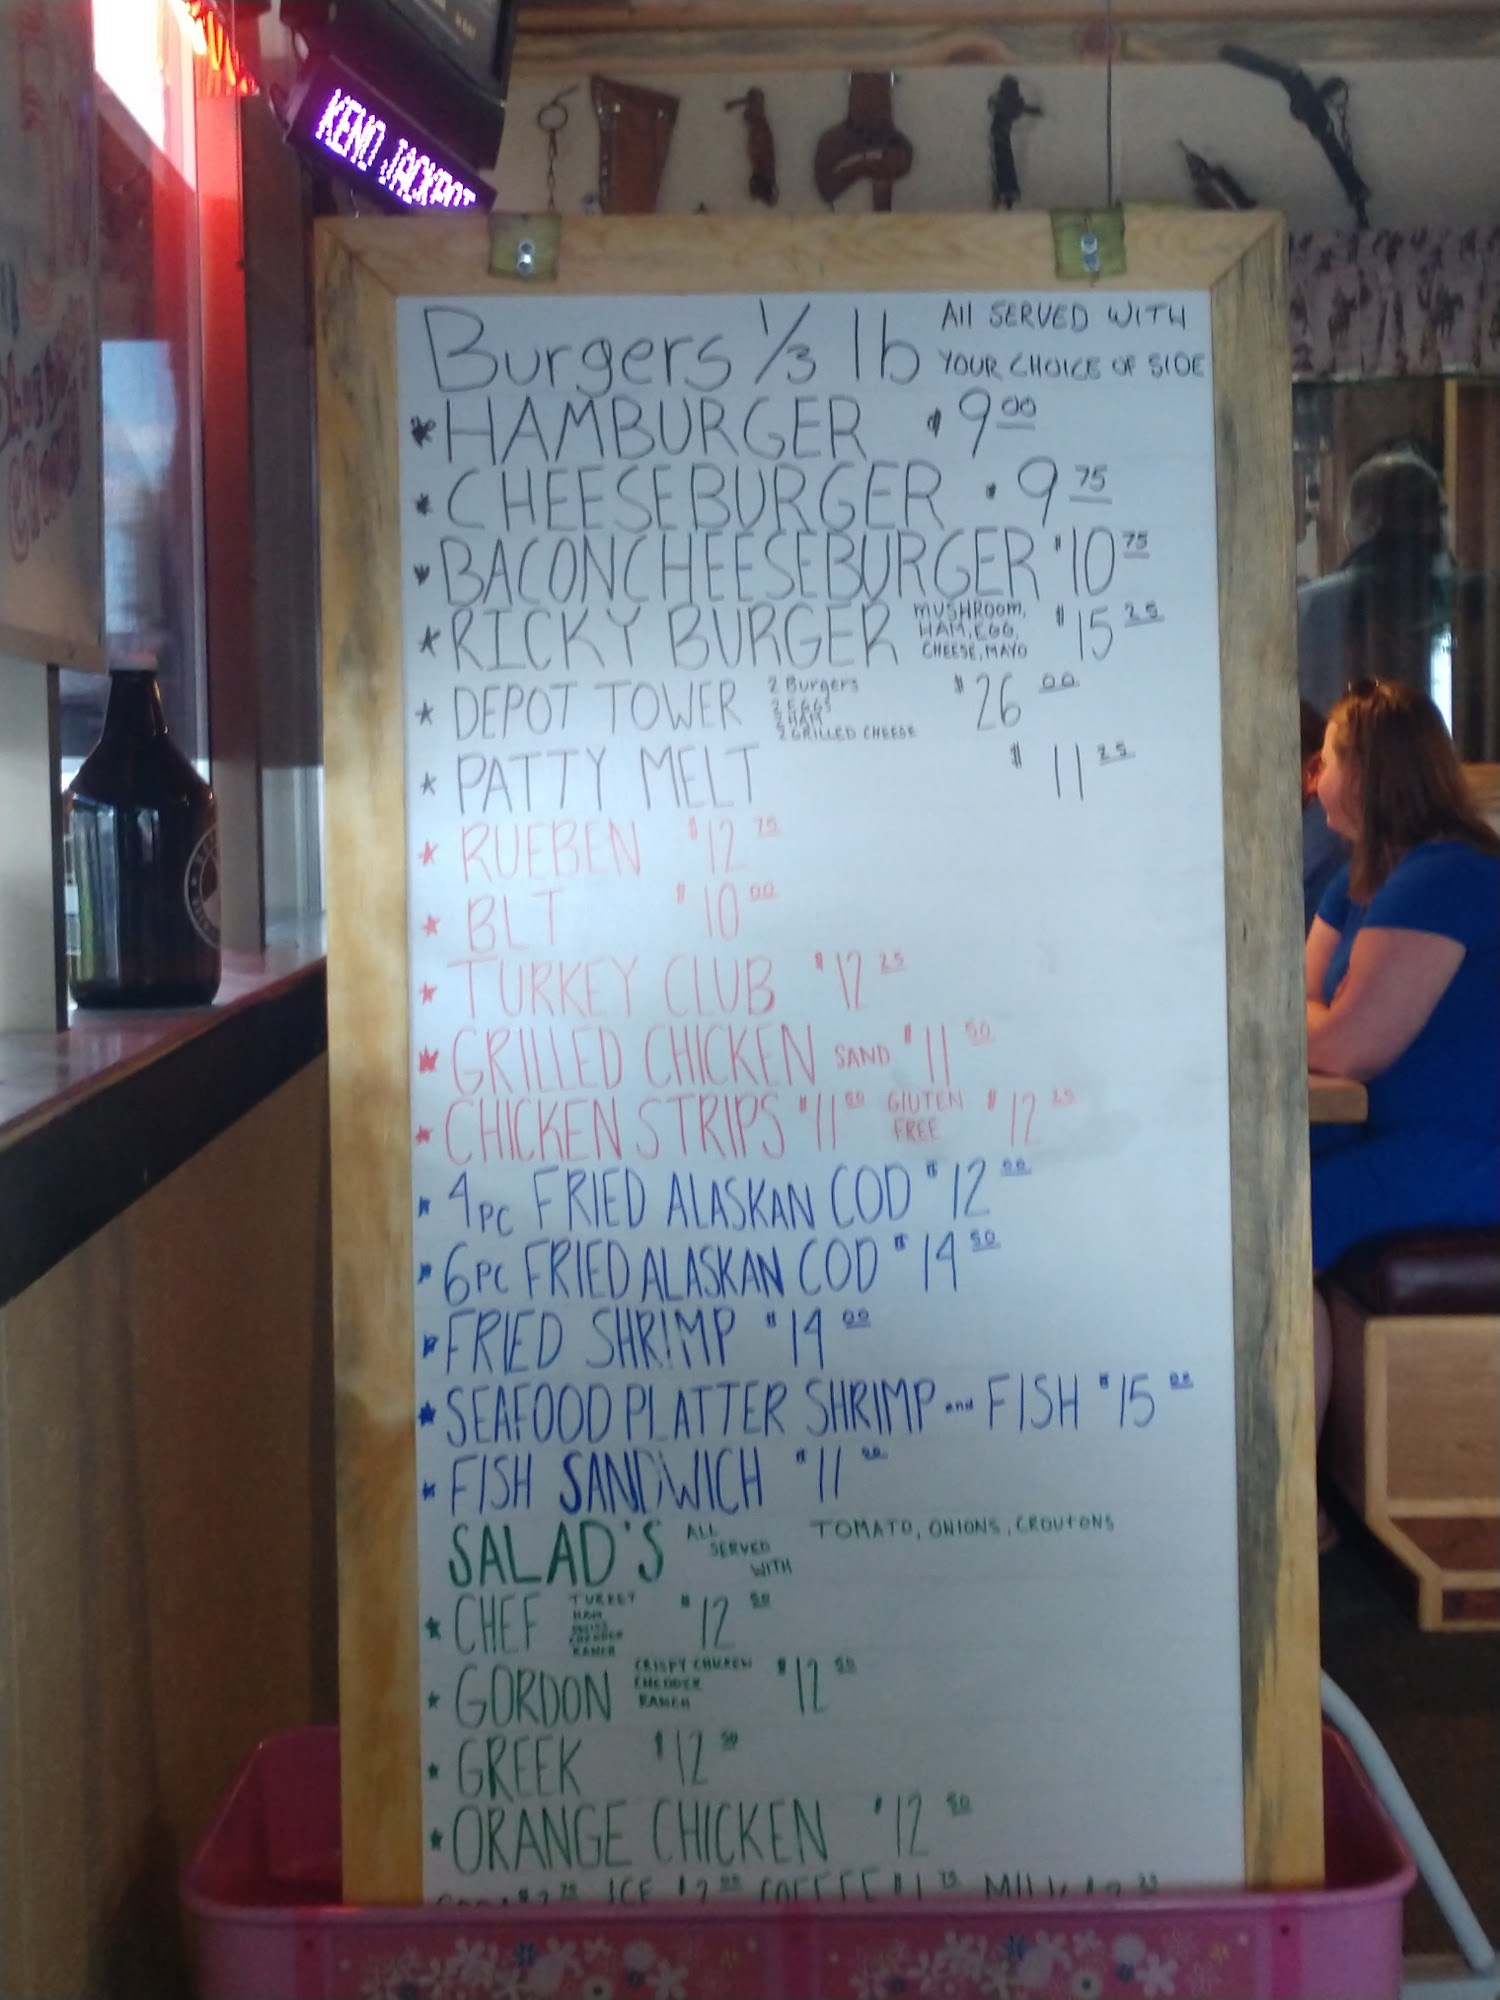 KENO JACKPOT
Burgers 1/3 lb All SERVED WITH
YOUR CHOICE OF SIDE
* HAMBURGER $9.00
* CHEESEBURGER $9.75
* BACONCHEESEBURGER $10.75
* RICKY BURGER MUSHROOM, HAM, EGG, CHEESE, MAYO $15.25
* DEPOT TOWER 2 Burgers 2 EGGS 2 HAM 2 GRILLED CHEESE $26.00
* PATTY MELT $11.25
* RUEBEN $12.75
* BLT $10.00
* TURKEY CLUB $12.25
* GRILLED CHICKEN SAND $11.50
* CHICKEN STRIPS $11.00 GLUTEN FREE $12.25
* 4PC FRIED ALASKAN COD $12.00
* 6PC FRIED ALASKAN COD $14.50
* FRIED SHRIMP $14.00
* SEAFOOD PLATTER SHRIMP and FISH $15
* FISH SANDWICH $11.00
SALAD'S ALL SERVED WITH TOMATO, ONIONS, CROUTONS
* CHEF TURKEY HAM SWISS CHEDDER RANCH $12.50
* GORDON CRISPY CHICKEN CHEDDER RANCH $12.50
* GREEK $12.50
* ORANGE CHICKEN $12.50
ICE COFFEE $1.75 MILK